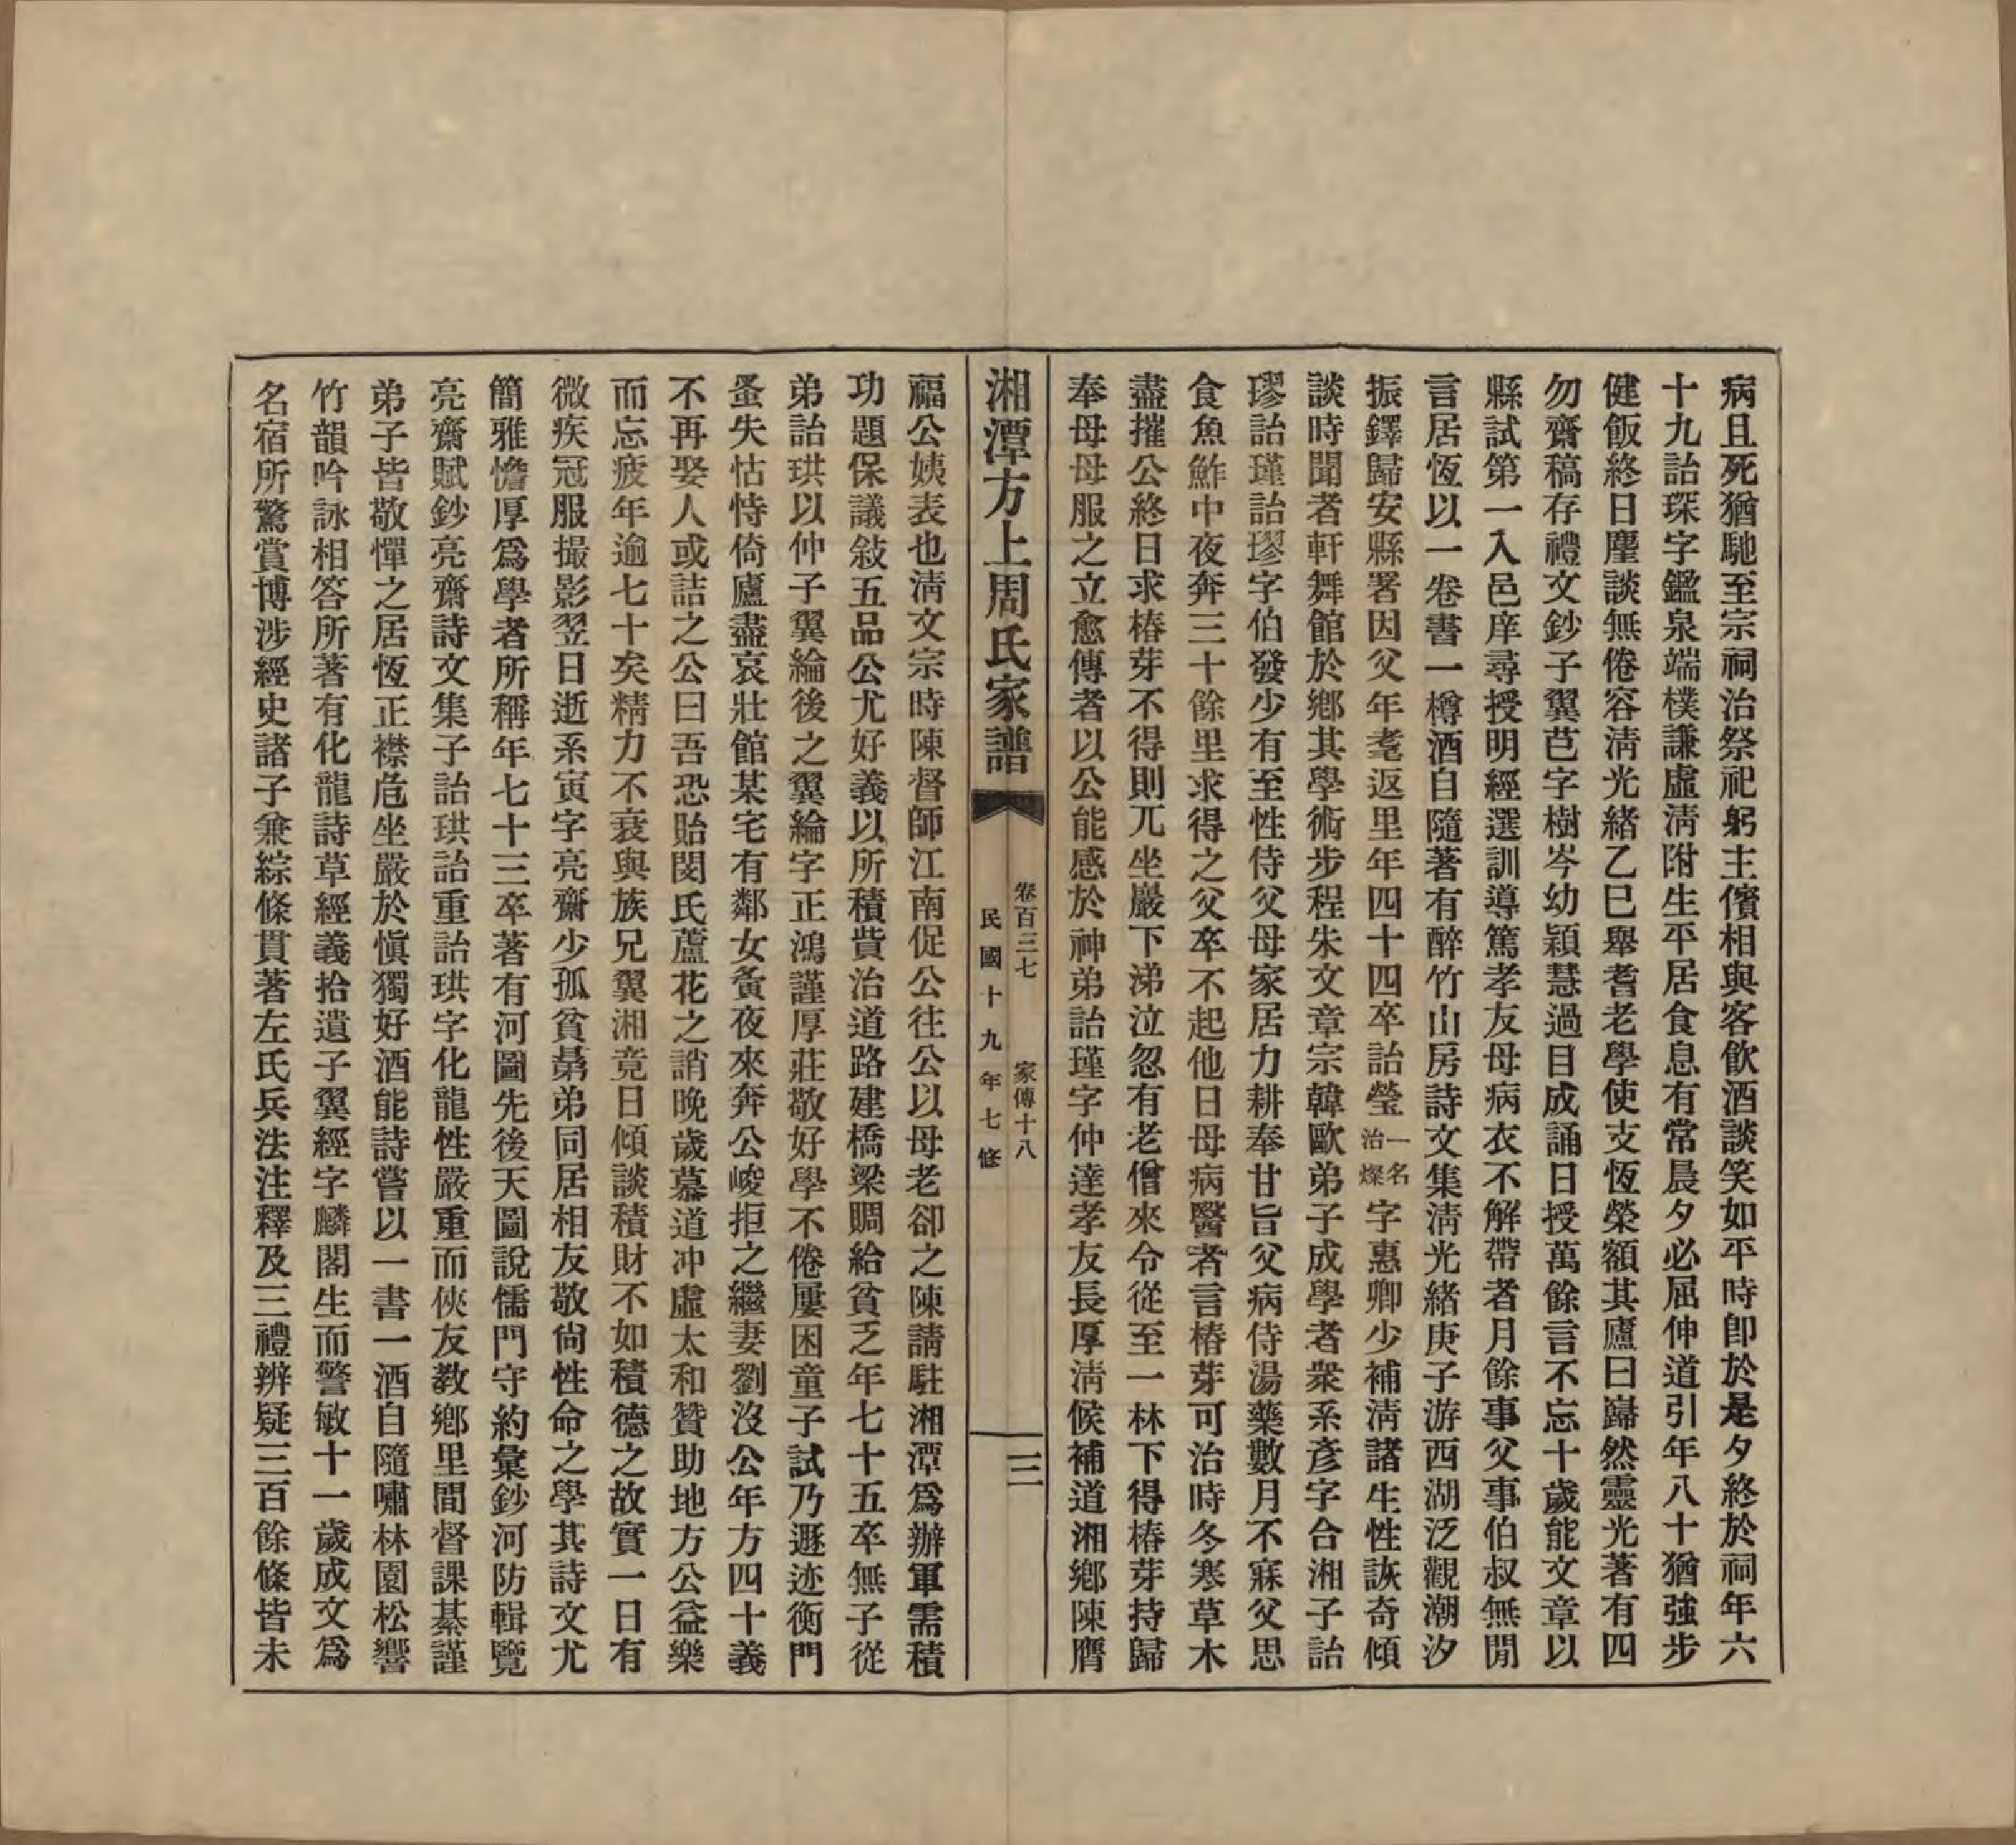 病且死猶馳至宗祠治祭祀躬主儐相與客飲酒談笑如平時卽於是夕終於祠年六
十九詒琛字鑑泉端樸謙虛淸附生平居食息有常晨夕必屈伸道引年八十猶強步
健飯終日麈談無倦容淸光緒乙巳舉耆老學使支恆榮額其廬曰巋然靈光著有四
勿齋稿存禮文鈔子翼芑字樹岑幼穎慧過目成誦日授萬餘言不忘十歲能文章以
縣試第一入邑庠尋授明經選訓導篤孝友母病衣不解帶者月餘事父事伯叔無閒
言居恆以一卷書一樽酒自隨著有醉竹山房詩文集淸光緒庚子游西湖泛觀潮汐
振鐸歸安縣署因父年耄返里年四十四卒詒瑩一名治燦字惠卿少補淸諸生性詼奇傾
談時聞者軒舞館於鄉其學術步程朱文章宗韓歐弟子成學者衆系彥字合湘子詒
璆詒瑾詒璆字伯發少有至性侍父母家居力耕奉甘旨父病侍湯藥數月不寐父思
食魚鮓中夜奔三十餘里求得之父卒不起他日母病醫者言椿芽可治時冬寒草木
盡摧公終日求椿芽不得則兀坐巖下涕泣忽有老僧來令從至一林下得椿芽持歸
奉母母服之立愈傳者以公能感於神弟詒瑾字仲達孝友長厚淸候補道湘鄉陳膺
湘潭方上周氏家譜
卷百三七
家傳十八
民國十九年七修
三
福公姨表也淸文宗時陳督師江南促公往公以母老卻之陳請駐湘潭爲辦軍需積
功題保議敍五品公尤好義以所積貲治道路建橋梁賙給貧乏年七十五卒無子從
弟詒珙以仲子翼綸後之翼綸字正鴻謹厚莊敬好學不倦屢困童子試乃遯迹衡門
蚤失怙恃倚廬盡哀壯館某宅有鄰女夤夜來奔公峻拒之繼妻劉沒公年方四十義
不再娶人或詰之公曰吾恐貽閔氏蘆花之誚晚歲慕道冲虛太和贊助地方公益樂
而忘疲年逾七十矣精力不衰與族兄翼湘竟日傾談積財不如積德之故實一日有
微疾冠服撮影翌日逝系寅字亮齋少孤貧㬎弟同居相友敬尙性命之學其詩文尤
簡雅憺厚爲學者所稱年七十三卒著有河圖先後天圖說儒門守約彙鈔河防輯覽
亮齋賦鈔亮齋詩文集子詒珙詒重詒珙字化龍性嚴重而俠友教鄉里間督課綦謹
弟子皆敬憚之居恆正襟危坐嚴於愼獨好酒能詩嘗以一書一酒自隨嘯林園松響
竹韻吟詠相答所著有化龍詩草經義拾遺子翼經字麟閣生而警敏十一歲成文爲
名宿所驚賞博涉經史諸子兼綜條貫著左氏兵法注釋及三禮辨疑三百餘條皆未